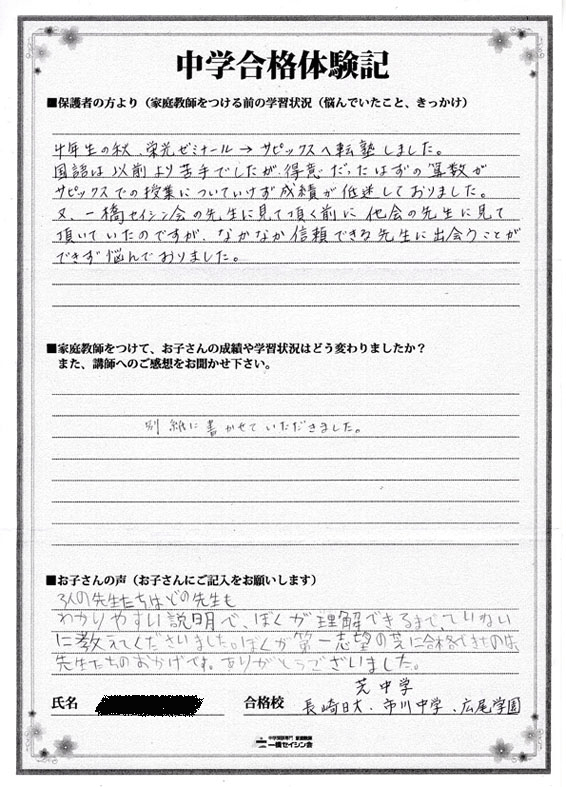 中学合格体験記
■保護者の方より（家庭教師をつける前の学習状況（悩んでいたこと、きっかけ）
4年生の秋、栄光ゼミナール→サピックスへ転塾しました。
国語は以前より苦手でしたが、得意だったはずの算数が
サピックスでの授業についていけず成績が低迷しておりました。
又、一橋セイシン会の先生に見て頂く前に他会の先生に見て
頂いていたのですが、なかなか信頼できる先生に出会うことが
できず悩んでおりました。
■家庭教師をつけて、お子さんの成績や学習状況はどう変わりましたか？
また、講師へのご感想をお聞かせ下さい。
別紙に書かせていただきました。
■お子さんの声（お子さんにご記入をお願いします）
3人の先生たちはどの先生も
わかりやすい説明で、ぼくが理解できるまで、ていねい
に教えてくださいました。ぼくが第一志望の芝に合格できたのは、
先生たちのおかげです。ありがとうございました。
芝中学
氏名 合格校 長崎日大、市川中学、広尾学園
中学受験専門 家庭教師
一橋セイシン会